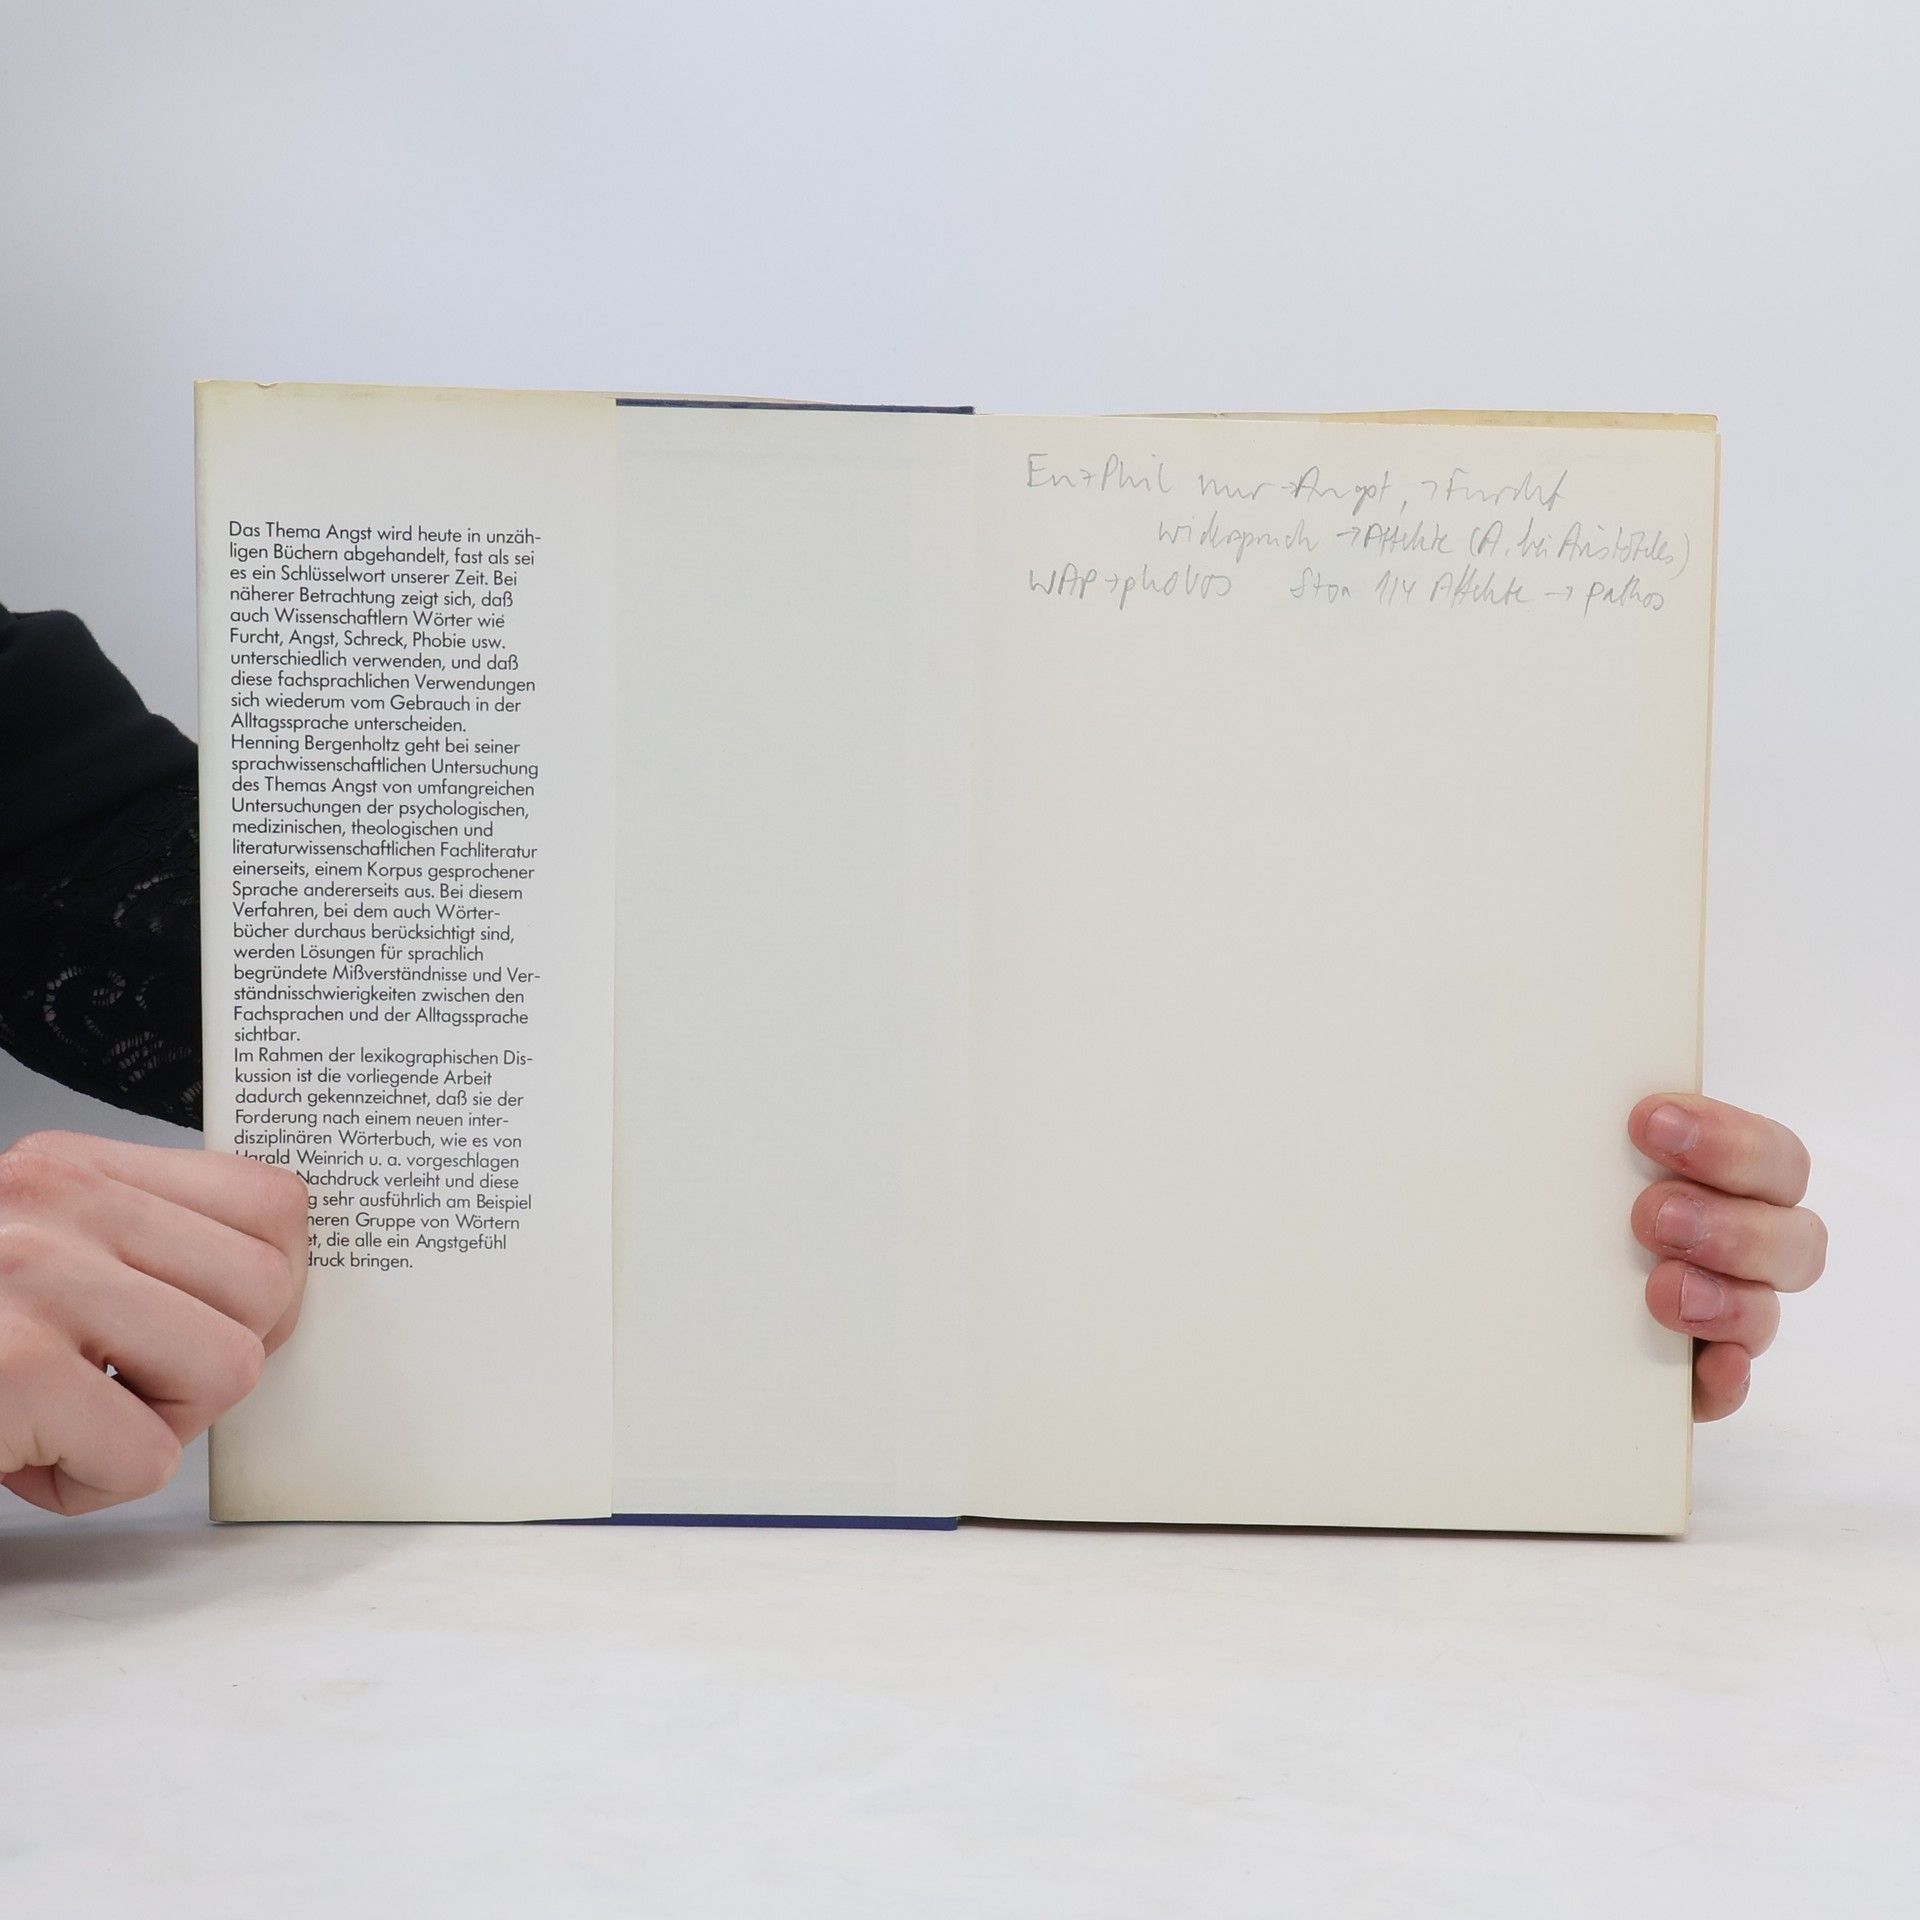 Das Thema Angst wird heute in unzäh-
ligen Büchern abgehandelt, fast als sei
es ein Schlüsselwort unserer Zeit. Bei
näherer Betrachtung zeigt sich, daß
auch Wissenschaftlern Wörter wie
Furcht, Angst, Schreck, Phobie usw.
unterschiedlich verwenden, und daß
diese fachsprachlichen Verwendungen
sich wiederum vom Gebrauch in der
Alltagssprache unterscheiden.
Henning Bergenholtz geht bei seiner
sprachwissenschaftlichen Untersuchung
des Themas Angst von umfangreichen
Untersuchungen der psychologischen,
medizinischen, theologischen und
literaturwissenschaftlichen Fachliteratur
einerseits, einem Korpus gesprochener
Sprache andererseits aus. Bei diesem
Verfahren, bei dem auch Wörter-
bücher durchaus berücksichtigt sind,
werden Lösungen für sprachlich
begründete Mißverständnisse und Ver-
ständnisschwierigkeiten zwischen den
Fachsprachen und der Alltagssprache
sichtbar.
Im Rahmen der lexikographischen Dis-
kussion ist die vorliegende Arbeit
dadurch gekennzeichnet, daß sie der
Forderung nach einem neuen inter-
disziplinären Wörterbuch, wie es von
Harald Weinrich u. a. vorgeschlagen
Nachdruck verleiht und diese
sehr ausführlich am Beispiel
Gruppe von Wörtern
die alle ein Angstgefühl
bringen.
EnzPhil nur →Angst, →Furcht
Widerspruch →Affekte (A. bei Aristoteles)
WAP→phobos Stoa 1/4 Affekte → pathos